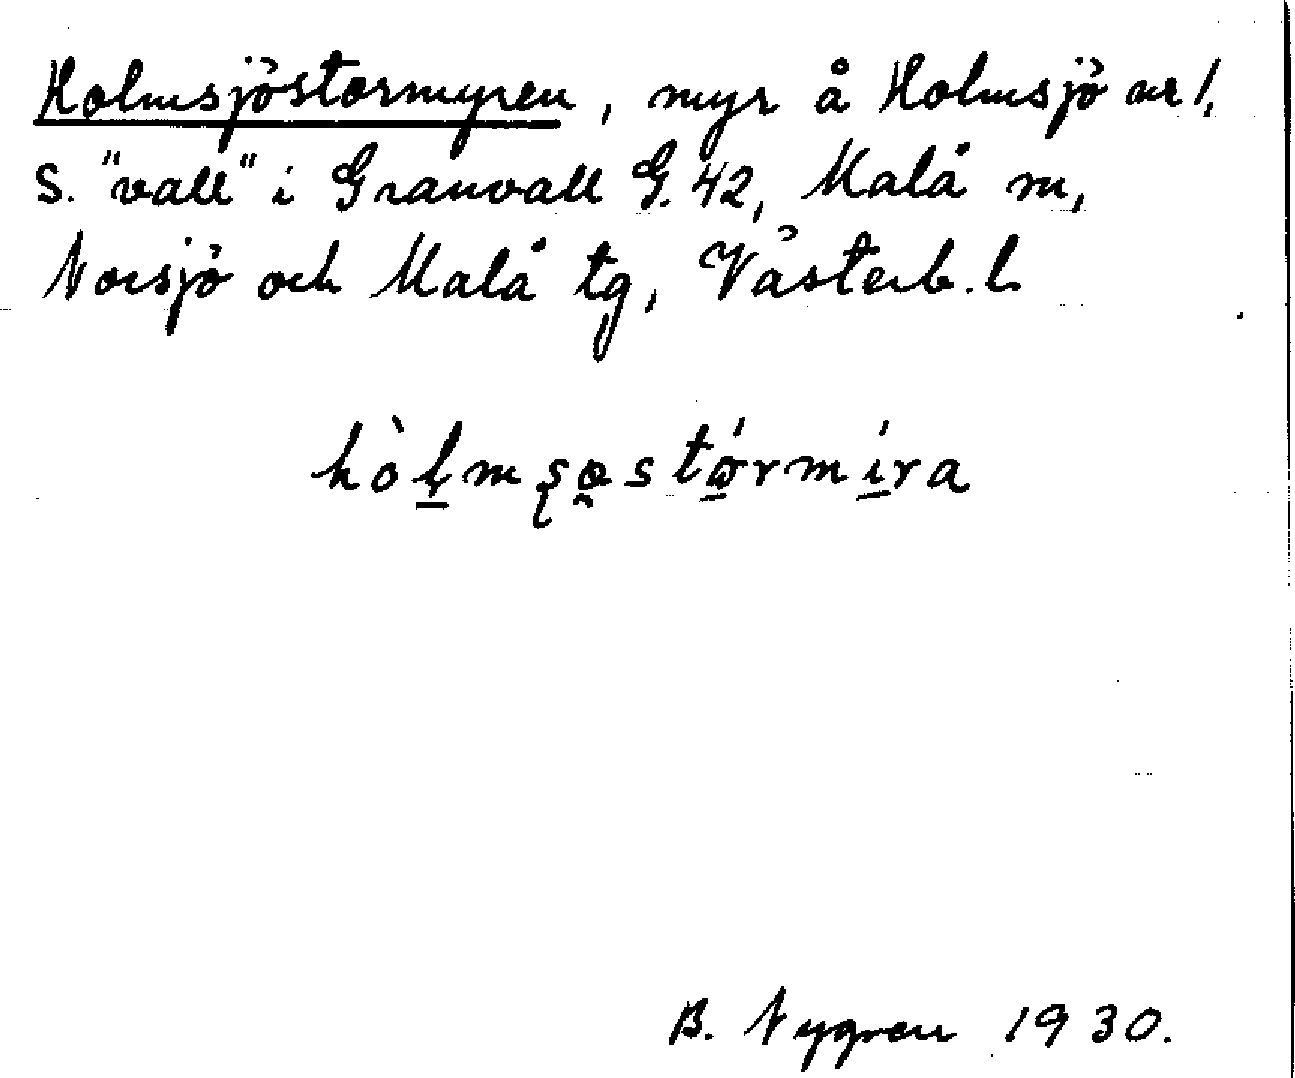 Holmsjöstormyren, myr å Holmsjö nr 1,
S. "vall" i Granvall G. 42, Malå sn,
Norsjö och Malå tg, Västerb. l.
hòl̲msøstǿrmíra
B. Nygren 1930.